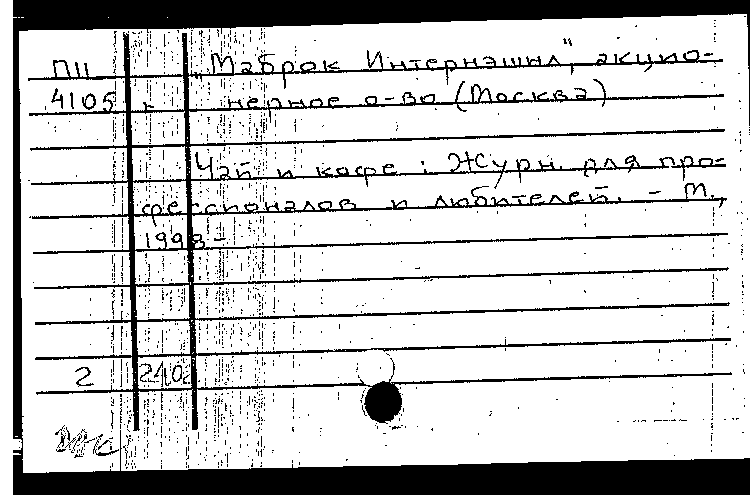 П11 „Маброк Интернэшнл", акцио-
4105 нерное о-во (Москва)
Чай и кофе : Журн. для про-
фессионалов и любителей. - М.,
1998 -
2 240